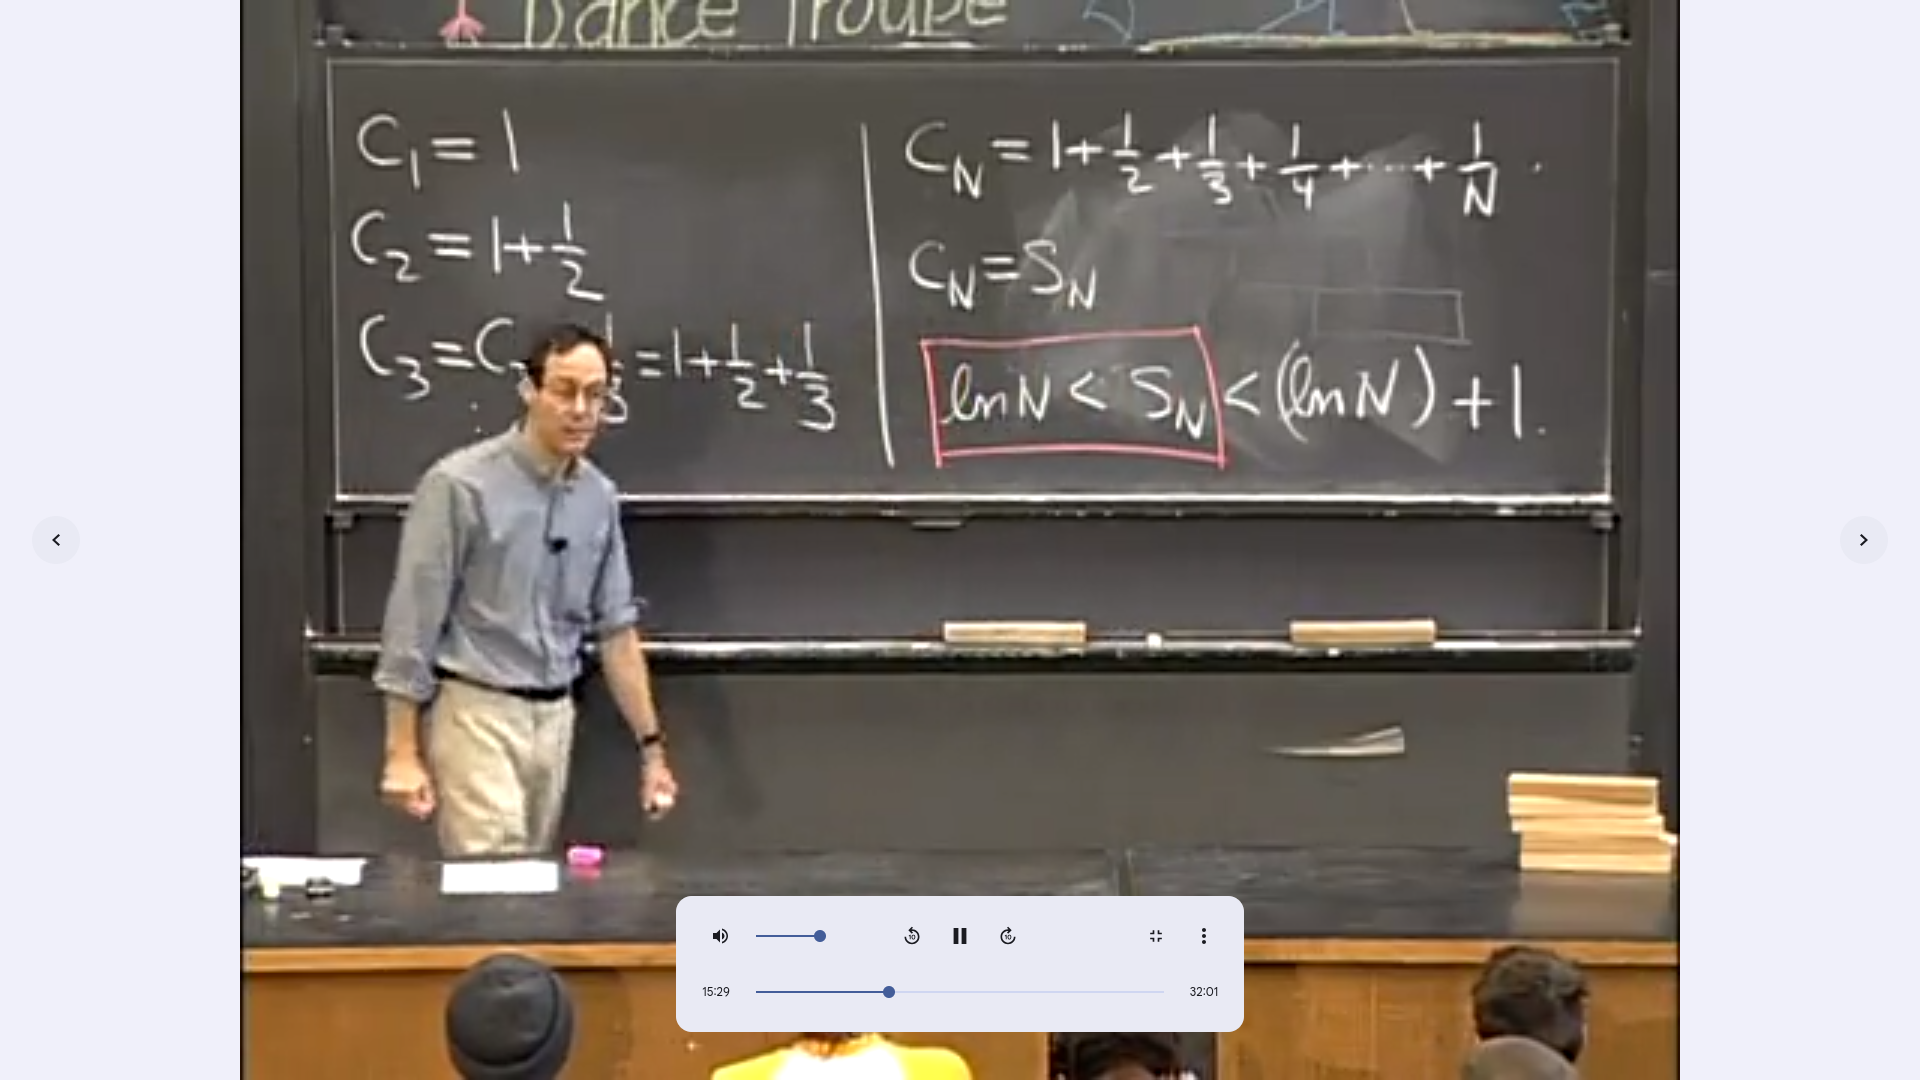 Dance Troupe
C₁ = 1
C₂ = 1 + 1/2
C₃ = C 1/3 = 1 + 1/2 + 1/3
C_N = 1 + 1/2 + 1/3 + 1/4 + ... + 1/N .
C_N = S_N
ln N < S_N < (ln N) + 1 .
10
10
15:29
32:01